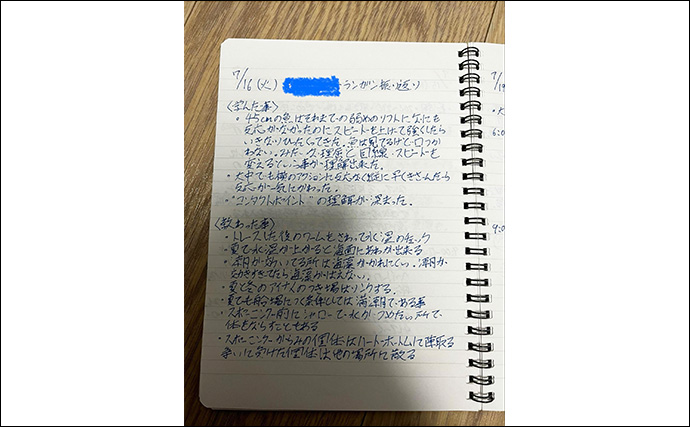 7/16(火) ランガン振り返り
〈学んだ事〉
・45cmの魚はそれまでの弱めのリフトに何にも
反応がなかったのにスピードを上げて強くしたら
いきなりひったくってきた。魚は見てるけど口つか
わない。みたいな理屈で 目線・スピードを
変えるという事が理解出来た。
・大中でも横のアクションに反応なく縦に早くきざんだら
反応が一気にかわった。
・"コンタクトポイント"の理解が深まった。
〈教わった事〉
・トレースした後のワームをさわって水温のチェック
・夏で水温が上がると海面にあわが出来る
・潮が効いてる所は海藻がかれにくい。潮が
効きすぎてたら海藻がはえない。
・夏と冬のアイナメのつき場はリンクする。
・夏でも 場につく条件としては 潮 である事
・スポーニング前にシャローで水がつめたい所で
体をならすこともある
・スポーニングからみの個体はハードボトムで陣取る
争いに負けた個体は他の場所に散る
7/19
6:0
9:0